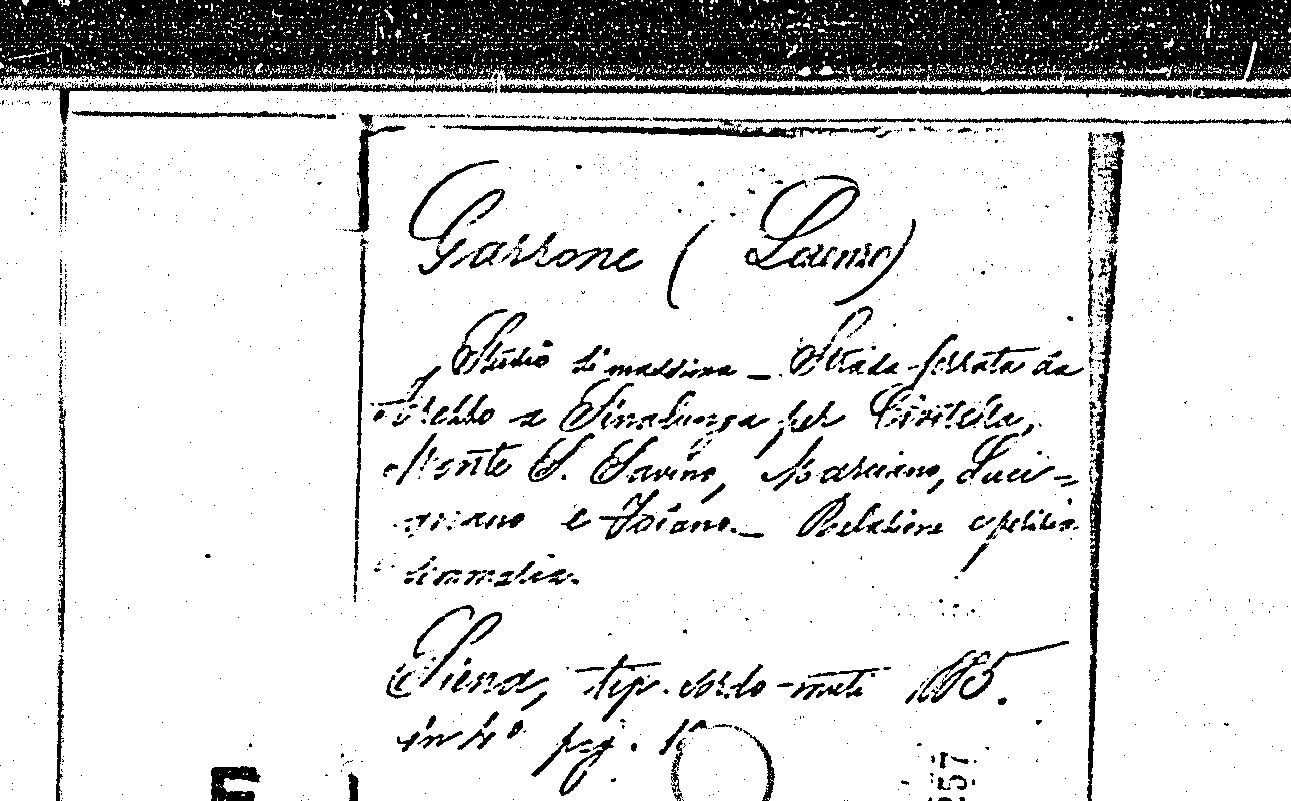 Garrone (Lorenzo)
Studio di massima _ Strada ferrata da
Arezzo a Sinalunga per Civitella,
Monte S. Savino, Marciano, Luci=
gnano e Foiano._ Relazione e perizia
sommaria.
Siena, tip. sordo-muti 1885.
in 4° pag.
257